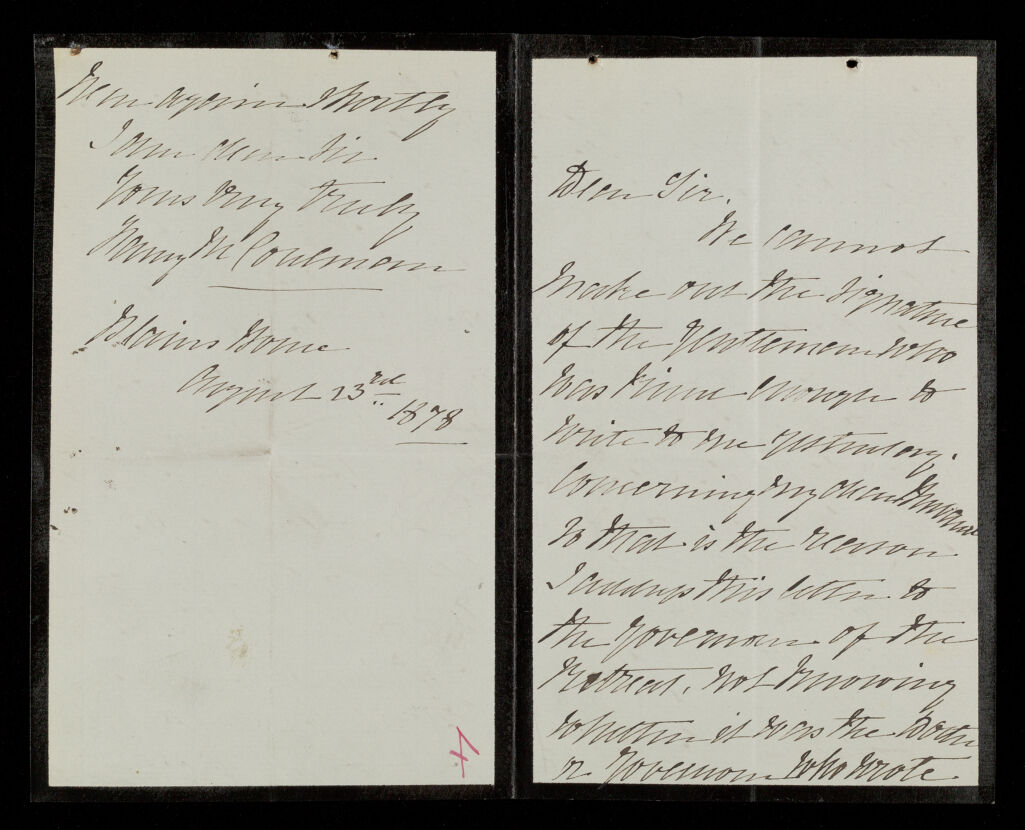 Hear again shortly
I am dear Sir
Yours very truly
Fanny M Coulman
Blains Home
August 23rd
1878
4
Dear Sir.
We cannot
make out the signature
of the Gentleman who
was kind enough to
write to me yesterday.
Concerning my dear
so that is the reason
I address this letter to
the Governor of the
Retreat. not knowing
whether it was the Doctor
or Governor who wrote.